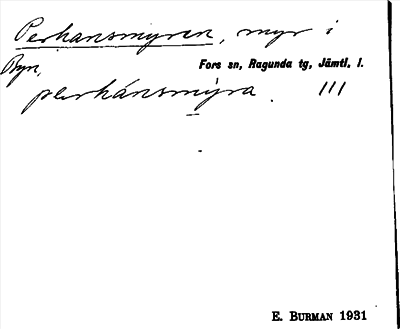 Perhansmyren, myr i
Byn, Fors sn, Ragunda tg, Jämtl. l.
perhánsmýra. III
E. BURMAN 1931